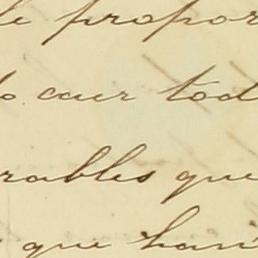 le propor
o caer tod
rables que
que han